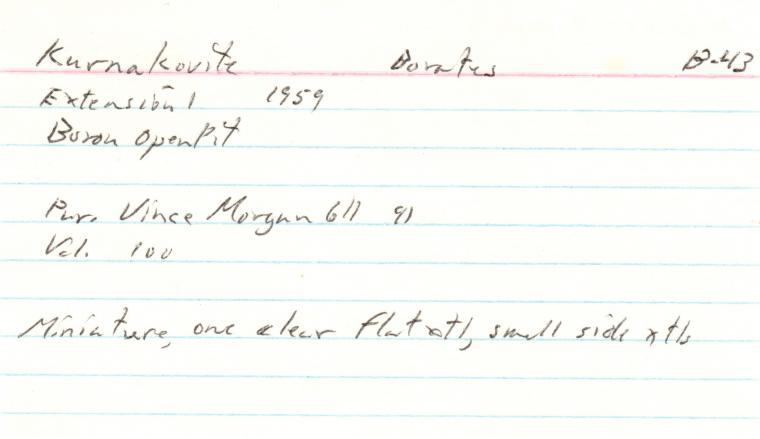 Kurnakovite Borates B-43
Extension 1 1959
Boron Open Pit
Pur. Vince Morgan 6/1 91
Val. 100
Miniature, one clear flat xtl, small side xtls